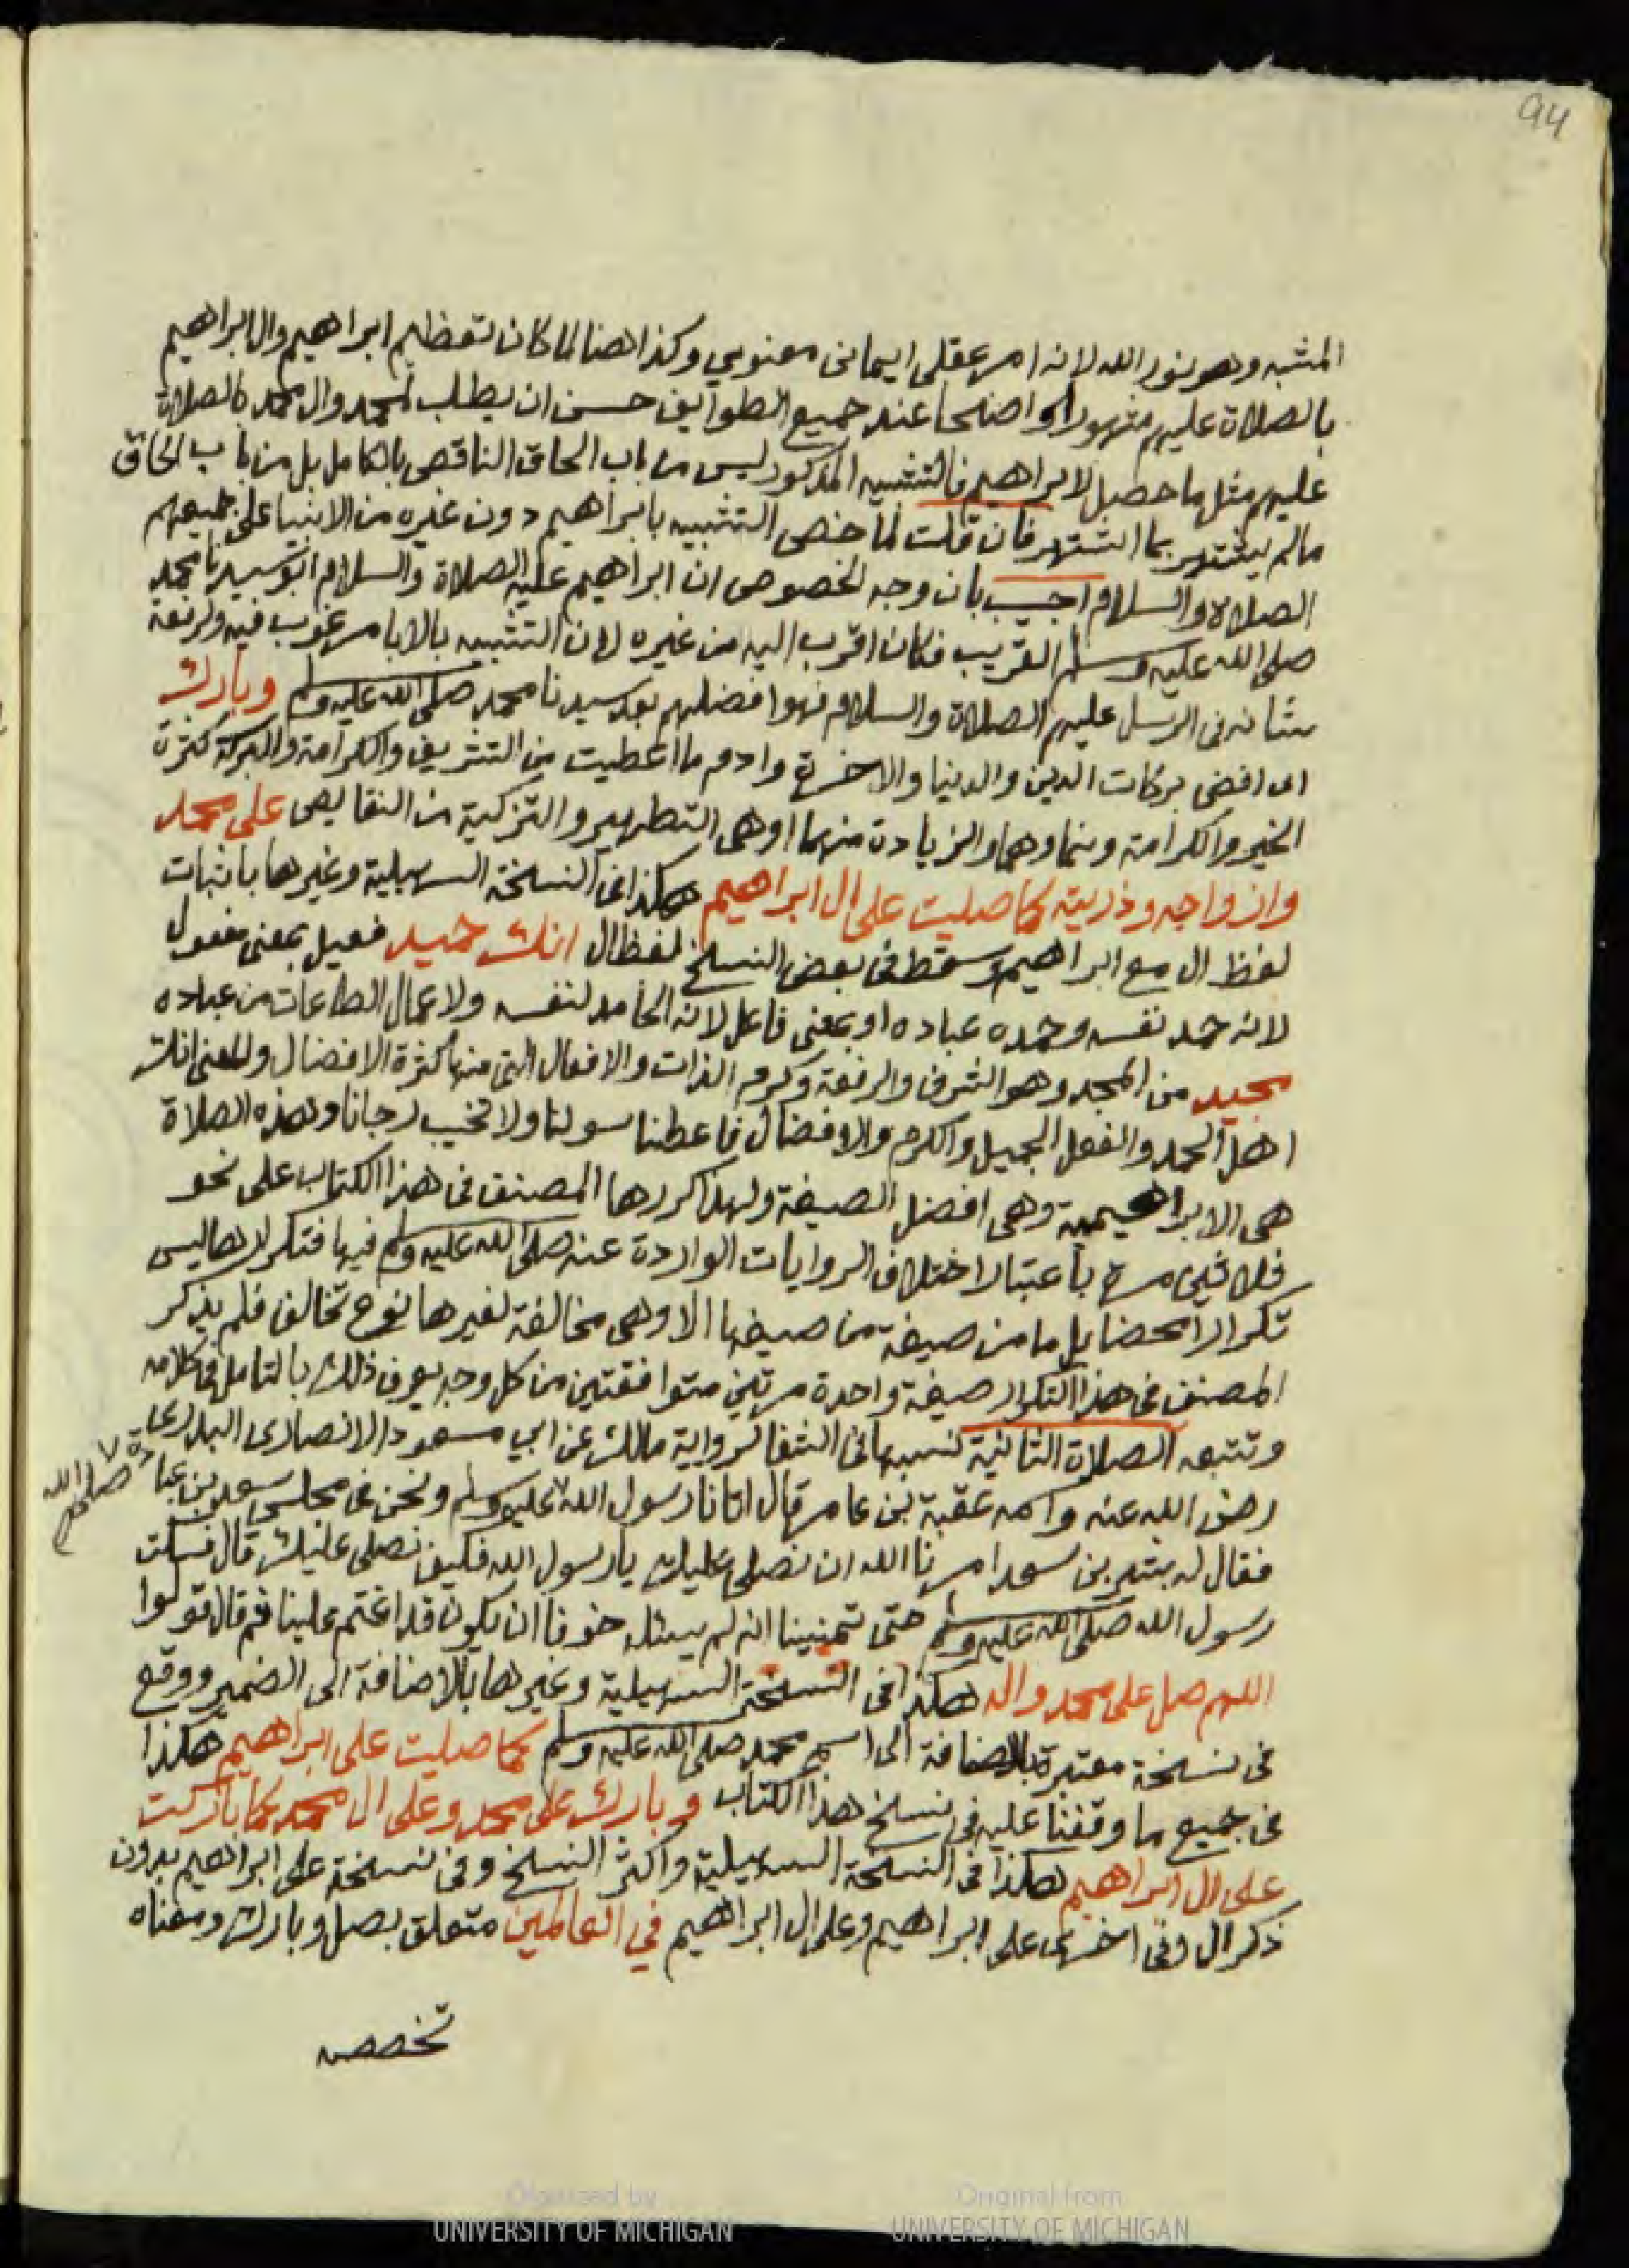 94
المشبه وهو نور الله لانه امر عقلى ايمانى معنوي وكذا هنا لما كان تعظيم ابراهيم وال ابراهيم
بالصلاة عليهم مشهورا واضحا عند جميع الطوايف حسن ان يطلب لمحمد وال محمد بالصلاة
عليهم مثل ما حصل لابراهيم فالتشبيه المذكور ليس من باب الحاق الناقص بالكامل بل من باب الحاق
مالم يشتهر بما اشتهر فان قلت لما خص التشبيه بابراهيم دون غيره من الانبيا على جميعهم
الصلاة والسلام اجيب بان وجه الخصوص ان ابراهيم عليه الصلاة والسلام ابو سيدنا محمد
صلى الله عليه وسلم القريب فكان اقرب اليه من غيره لان التشبيه بالابا مرغوب فيه ولرفعة
شانه فى الرسل عليهم الصلاة والسلام فهو افضلهم بعد سيدنا محمد صلى الله عليه وسلم وبارك
اى افض بركات الدين والدنيا والاخرة وادم ما اعطيت من التشريف والكرامة والبركة كثرة
الخير والكرامة ونماوهما والزيادة منهما او هى التطهير والتزكية من النقايص على محمد
وازواجه وذريته كما صليت على ال ابراهيم هكذا فى النسخة السهيلية وغيرها باثبات
لفظ ال مع ابراهيم وسقط فى بعض النسخ لفظ ال انك حميد فعيل بمعنى مفعول
لانه حمد نفسه وحمده عباده او بمعنى فاعل لانه الحامد لنفسه ولاعمال الطاعات من عباده
مجيد من المجد وهو الشرف والرفعة وكرم الذات والافعال التى منها كثرة الافضال والمعنى انك
اهل الحمد والفعل الجميل والكرم والافضال فاعطنا سولنا ولا تخيب رجانا وهذه الصلاة
هى الابراهيمية وهى افضل الصيغة ولهذا كررها المصنف فى هذا الكتاب على نحو
ثلاثين مرة باعتبار اختلاف الروايات الواردة عنه صلى الله عليه وسلم فيها فتكرارها ليس
تكرارا محضا بل ما من صيغة من صيغها الا وهى مخالفة لغيرها نوع تخالف فلم يذكر
المصنف فى هذا التكرار صيغة واحدة مرتين متوافقتين من كل وجه يعرف ذلك بالتامل فى كلامه
وتتبعه الصلاة الثانية نسبها فى الشفا لرواية مالك عن ابي مسعود الانصارى البدرى
رضى الله عنه واسمه عقبة بن عامر قال اتانا رسول الله عليه وسلم ونحن فى مجلس سعد بن عبادة
صلى الله
فقال له بشير بن سعد امرنا الله ان نصلى عليك يا رسول الله فكيف نصلى عليك قال فسكت
رسول الله صلى الله عليه وسلم حتى تمنينا انه لم يسئله خوفا ان يكون قد اغتم علينا ثم قال قولوا
اللهم صل على محمد واله هكذا فى النسخة السهيلية وغيرها بالاضافة الى الضمير ووقع
فى نسخة معتبرة بالاضافة الى اسم محمد صلى الله عليه وسلم كما صليت على ابراهيم هكذا
فى جميع ما وقفنا عليه فى نسخ هذا الكتاب وبارك على محمد وعلى ال محمد كما باركت
على ال ابراهيم هكذا فى النسخة السهيلية واكثر النسخ وفى نسخة على ابراهيم بدون
ذكر ال وفى اخرى على ابراهيم وعلى ال ابراهيم في العالمين متعلق بصل وبارك ومعناه
تخصص
Digitized by
UNIVERSITY OF MICHIGAN
Original from
UNIVERSITY OF MICHIGAN